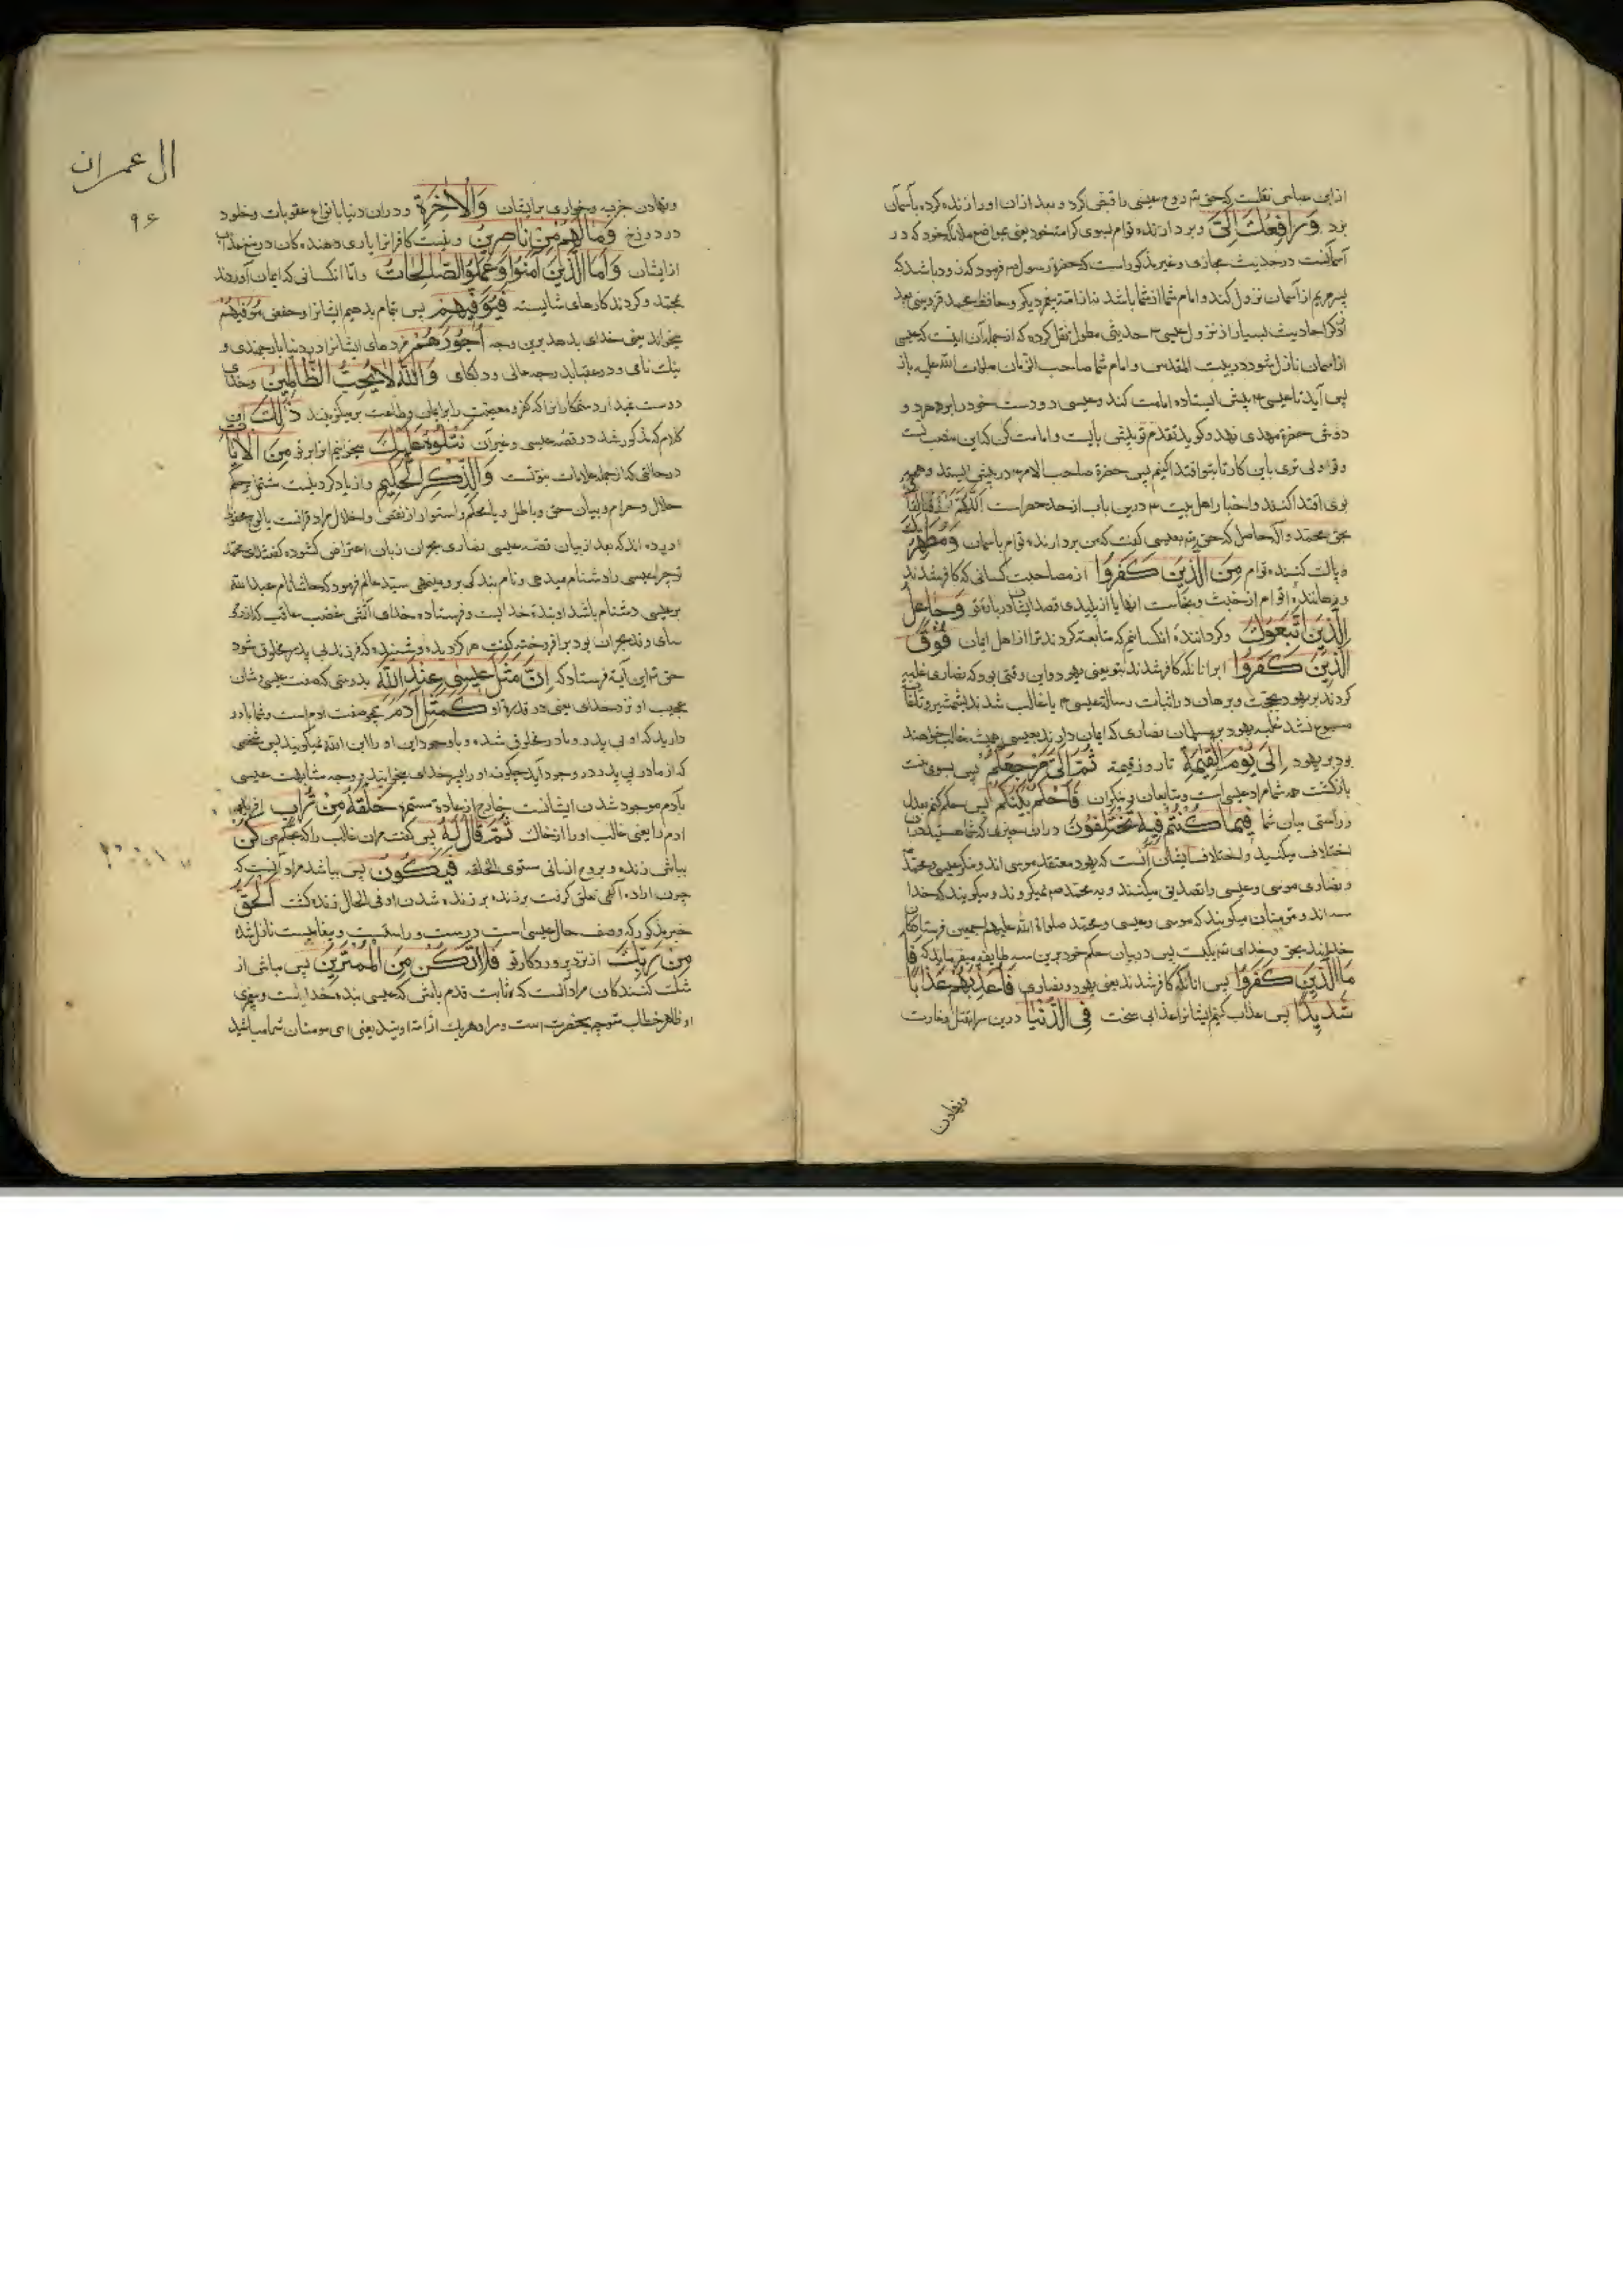 از ابن عباس نقلست که حق تم روح عیسی را قبض کرد و بعد ازان او را زنده کرده بآسمان
برد وَرَافِعُكَ اِلَیَّ و بردارنده توام بسوی کرامت خود یعنی بمواضع ملائکه خود که در
آسمانست در حدیث و غیر مذکور است که حضرة رسول م فرمود که زود باشد که
پسر مریم از آسمان نزول کند و امام شما از شما باشد نه از امت پیغمبر دیگر و حافظ محمد بعد
از ذکر احادیث بسیار از نزول عیسی م حدیثی مطول نقل کرده که از جمله آن اینست که عیسی
از آسمان نازل شود در بیت المقدس و امام شما صاحب الزمان صلوات الله علیه باز
پس آید تا عیسی م پیش ایستاده امامت کند و عیسی م دو دست خود را بر هر دو
دوش حضرة مهدی نهد و گوید تقدم تو پیش بایست و امامت کن که این منصب تست
و تو اولی تری باین کار تا بتو اقتدا کنیم پس حضرة صاحب الامر م در پیش ایستد و همه
بوی اقتدا کنند و اخبار اهل بیت م درین باب از حد حصر است
بحق محمد و آله حاصل که حق تم بعیسی گفت که من بردارنده توام باسمان وَمُطَهِّرُكَ
و پاک کننده توام مِنَ الَّذِينَ كَفَرُوا از مصاحبت کسانی که کافر شدند
و رهاننده توام از خبث و نجاست انها یا از پلیدی قصد ایشان درباره تو وَجَاعِلُ
الَّذِينَ اتَّبَعُوكَ و گرداننده انکسانیم که متابعت کردند ترا از اهل ایمان فَوْقَ
الَّذِينَ كَفَرُوا بر انانکه کافر شدند بتو یعنی یهود و این وقتی بود که نصاری غلبه
کردند بر یهود بحجت و برهان در اثبات رسالت عیسی م یا غالب شدند بشمشیر و تلقا
مسموع نشد غلبه یهود بر مسلمانان نصاری که ایمان دارند بعیسی همیشه غالب خواهند
بود بر یهود اِلَى يَوْمِ الْقِيٰمَةِ تا روز قیمة ثُمَّ اِلَىَّ مَرْجِعُكُمْ پس بسوی منست
بازگشت همه شما مراد عیسی است و متابعان و منکران فَاَحْكُمُ بَيْنَكُمْ پس حکم کنم بعدل
و راستی میان شما فِيمَا كُنْتُمْ فِيهِ تَخْتَلِفُونَ در ان چیزی که شما هستید دران
اختلاف میکنید و اختلاف ایشان آنست که یهود معتقد موسی اند و منکر عیسی و محمد
و نصاری موسی و عیسی را تصدیق میکنند و به محمد صم نمیگروند و میگویند که خدا
سه اند و مؤمنان میگویند که موسی و عیسی و محمد صلواة الله علیهم اجمعین فرستادکان
خداوند بحق و خدای تم یکیست پس در بیان حکم خود برین سه طایفه میفرماید که فَا
مَّا الَّذِينَ كَفَرُوا پس انانکه کافر شدند یعنی یهود و نصاری فَاُعَذِّبُهُمْ عَذَابًا
شَدِيدًا پس عذاب کنم ایشانرا عذابی سخت فِى الدُّنْيَا درین سرا بقتل و غارت
ونهادن
ال عمران
۹۶
و نهادن جزیه و خواری بر ایشان وَالْاٰخِرَةِ و در ان دنیا بانواع عقوبات و خلود
در دوزخ وَمَا لَهُمْ مِنْ نَاصِرِينَ و نیست کافرانرا یاری دهندهکان در منع عذاب
از ایشان وَاَمَّا الَّذِينَ اٰمَنُوا وَعَمِلُوا الصَّالِحَاتِ و اما انکسانی که ایمان آوردند
بمحمد و کردند کارهای شایسته فَيُوَفِّيهِمْ پس تمام بدهیم ایشانرا و حفص يُوَفِّيهِمْ
میخواند یعنی خدای بدهد برین وجه اُجُورَهُمْ مزدهای ایشانرا در دنیا بارجمندی و
نیک نامی و در عقبا بدرجه عالی و دلکای وَاللّٰهُ لَا يُحِبُّ الظَّالِمِينَ و خدای
دوست نمیدارد ستمکارانرا که کفر و معصیت را بر ایمان و طاعت بر میگزینند ذٰلِكَ این
کلام که مذکور شد در قصه عیسی و غیر آن نَتْلُوهُ عَلَيْكَ میخوانیم انرا بر تو مِنَ الْاٰيَاتِ
در حالتی که از جمله علامات نبوتست وَالذِّكْرِ الْحَكِيمِ و از یاد کردنیست مشتمل بر حکم
حلال و حرام و بیان حق و باطل و یا محکم و استوار از نقص و اخلال مراد قرانست یا لوح محفوظ
اورده اند که بعد از بیان قصه عیسی نصاری نجران زبان اعتراض کشوده گفتند ای محمد
تو چرا عیسی را دشنام میدهی و نام بندگی برو مینهی سید عالم فرمود که حاشا نام عبد الله
بر عیسی دشنام باشد او بنده خدایست و فرستاده خدای آتش غضب عاقب که از رؤ
سای وفد نجران بود برافروخته گفت هرگز دیده و شنیده که فرزند بی پدر مخلوق شود
حق تم این آیة فرستاد که اِنَّ مَثَلَ عِيسٰى عِنْدَ اللّٰهِ بدرستی که صفت عیسی و شان
عجیب او نزد خدای یعنی در قدرة او كَمَثَلِ اٰدَمَ همچو صفت ادم است و شما باور
دارید که او بی پدر و مادر مخلوق شده و با وجود این او را ابن الله نمیگویید پس شخصی
که از مادر بی پدر در وجود آید چگونه او را پسر خدای میخوانید و وجه مشابهت عیسی
بآدم موجود شدن ایشانست خارج از عادة مستمره خَلَقَهُ مِنْ تُرَابٍ افرید
ادم را یعنی قالب او را از خاک ثُمَّ قَالَ لَهُ پس گفت مران قالب را که بحکم من كُنْ
بباش زنده و بروح انسانی مستوی الخلقه فَيَكُونُ پس بباشد مراد آنست که
چون اراده الهی تعلق گرفت بر زنده شدن او فی الحال زنده گشت اَلْحَقُّ
خبر مذکور که وصف حال عیسی است درست و راستست و نازل شده
مِنْ رَبِّكَ از نزد پروردگار تو فَلَا تَكُنْ مِنَ الْمُمْتَرِينَ پس مباش از
شک کنندکان مراد آنست که ثابت قدم باش که عیسی بنده خدایست و پیغمبری
او ظاهر خطاب متوجه بحضرت است و مراد هر یک از امة اویند یعنی ای مومنان شما مباشید